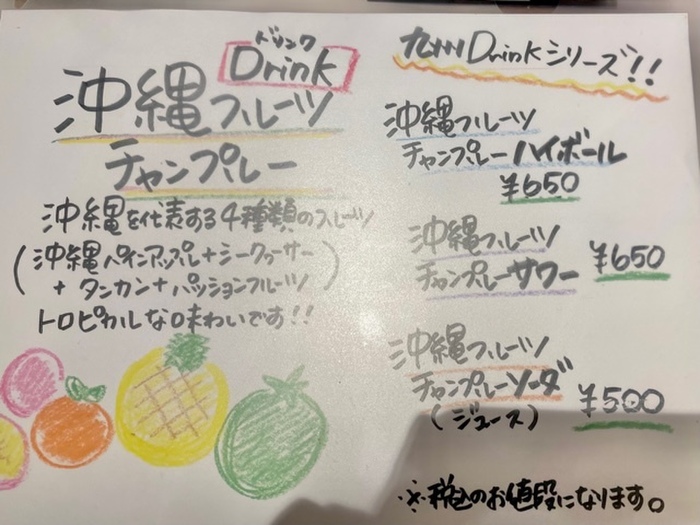 ドリンク
Drink
沖縄フルーツ
チャンプルー
沖縄を代表する4種類のフルーツ
(沖縄パインアップル+シークヮーサー
+タンカン+パッションフルーツ)
トロピカルな味わいです!!
九州Drinkシリーズ!!
沖縄フルーツ
チャンプルーハイボール
¥650
沖縄フルーツ
チャンプルーサワー ¥650
沖縄フルーツ
チャンプルーソーダ
(ジュース) ¥500
※税込のお値段になります。